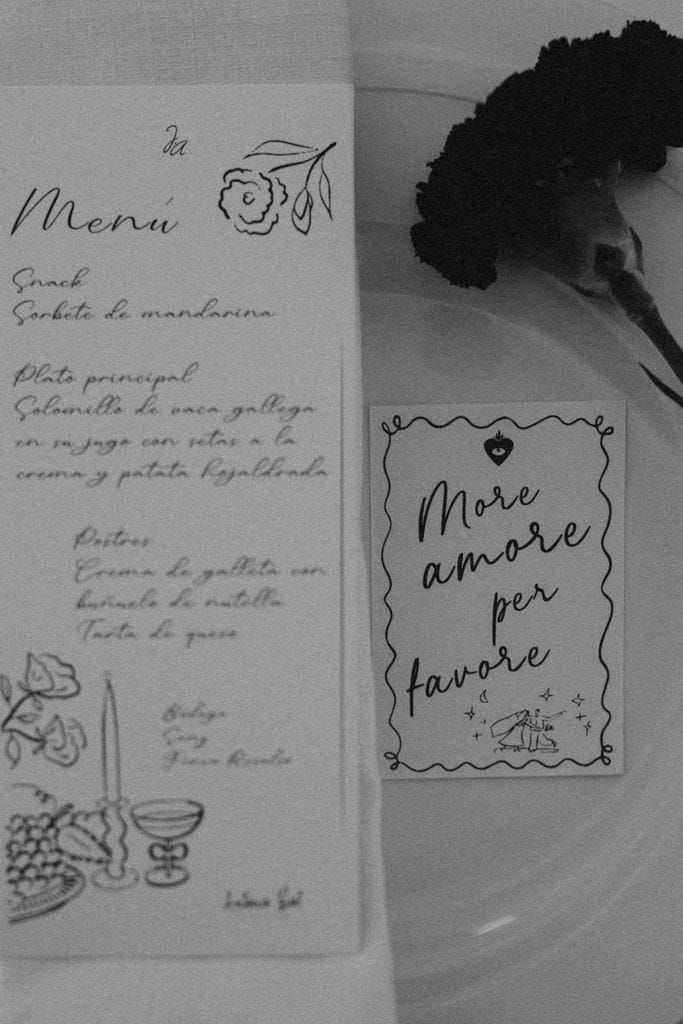 Menú
Snack
Sorbete de mandarina
Plato principal
Solomillo de vaca gallega
en su jugo con setas a la
crema y patata hojaldrada
Postres
Crema de galleta con
buñuelo de nutella
Tarta de queso
Bodega
More
amore
per
favore